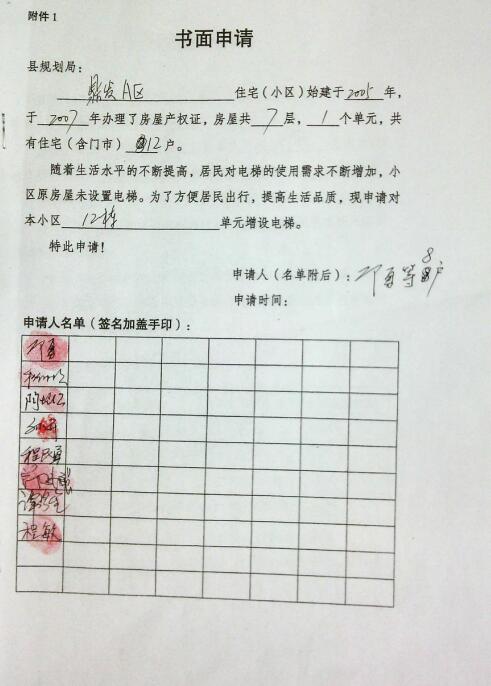 附件1
书面申请
县规划局：
A区 住宅（小区）始建于2005年，
于2007年办理了房屋产权证，房屋共7层，1个单元，共
有住宅（含门市）12户。
随着生活水平的不断提高，居民对电梯的使用需求不断增加，小
区原房屋未设置电梯。为了方便居民出行，提高生活品质，现申请对
本小区12栋单元增设电梯。
特此申请！
申请人（名单附后）：邓勇等8户
申请时间：
申请人名单（签名加盖手印）：
邓勇
程敏